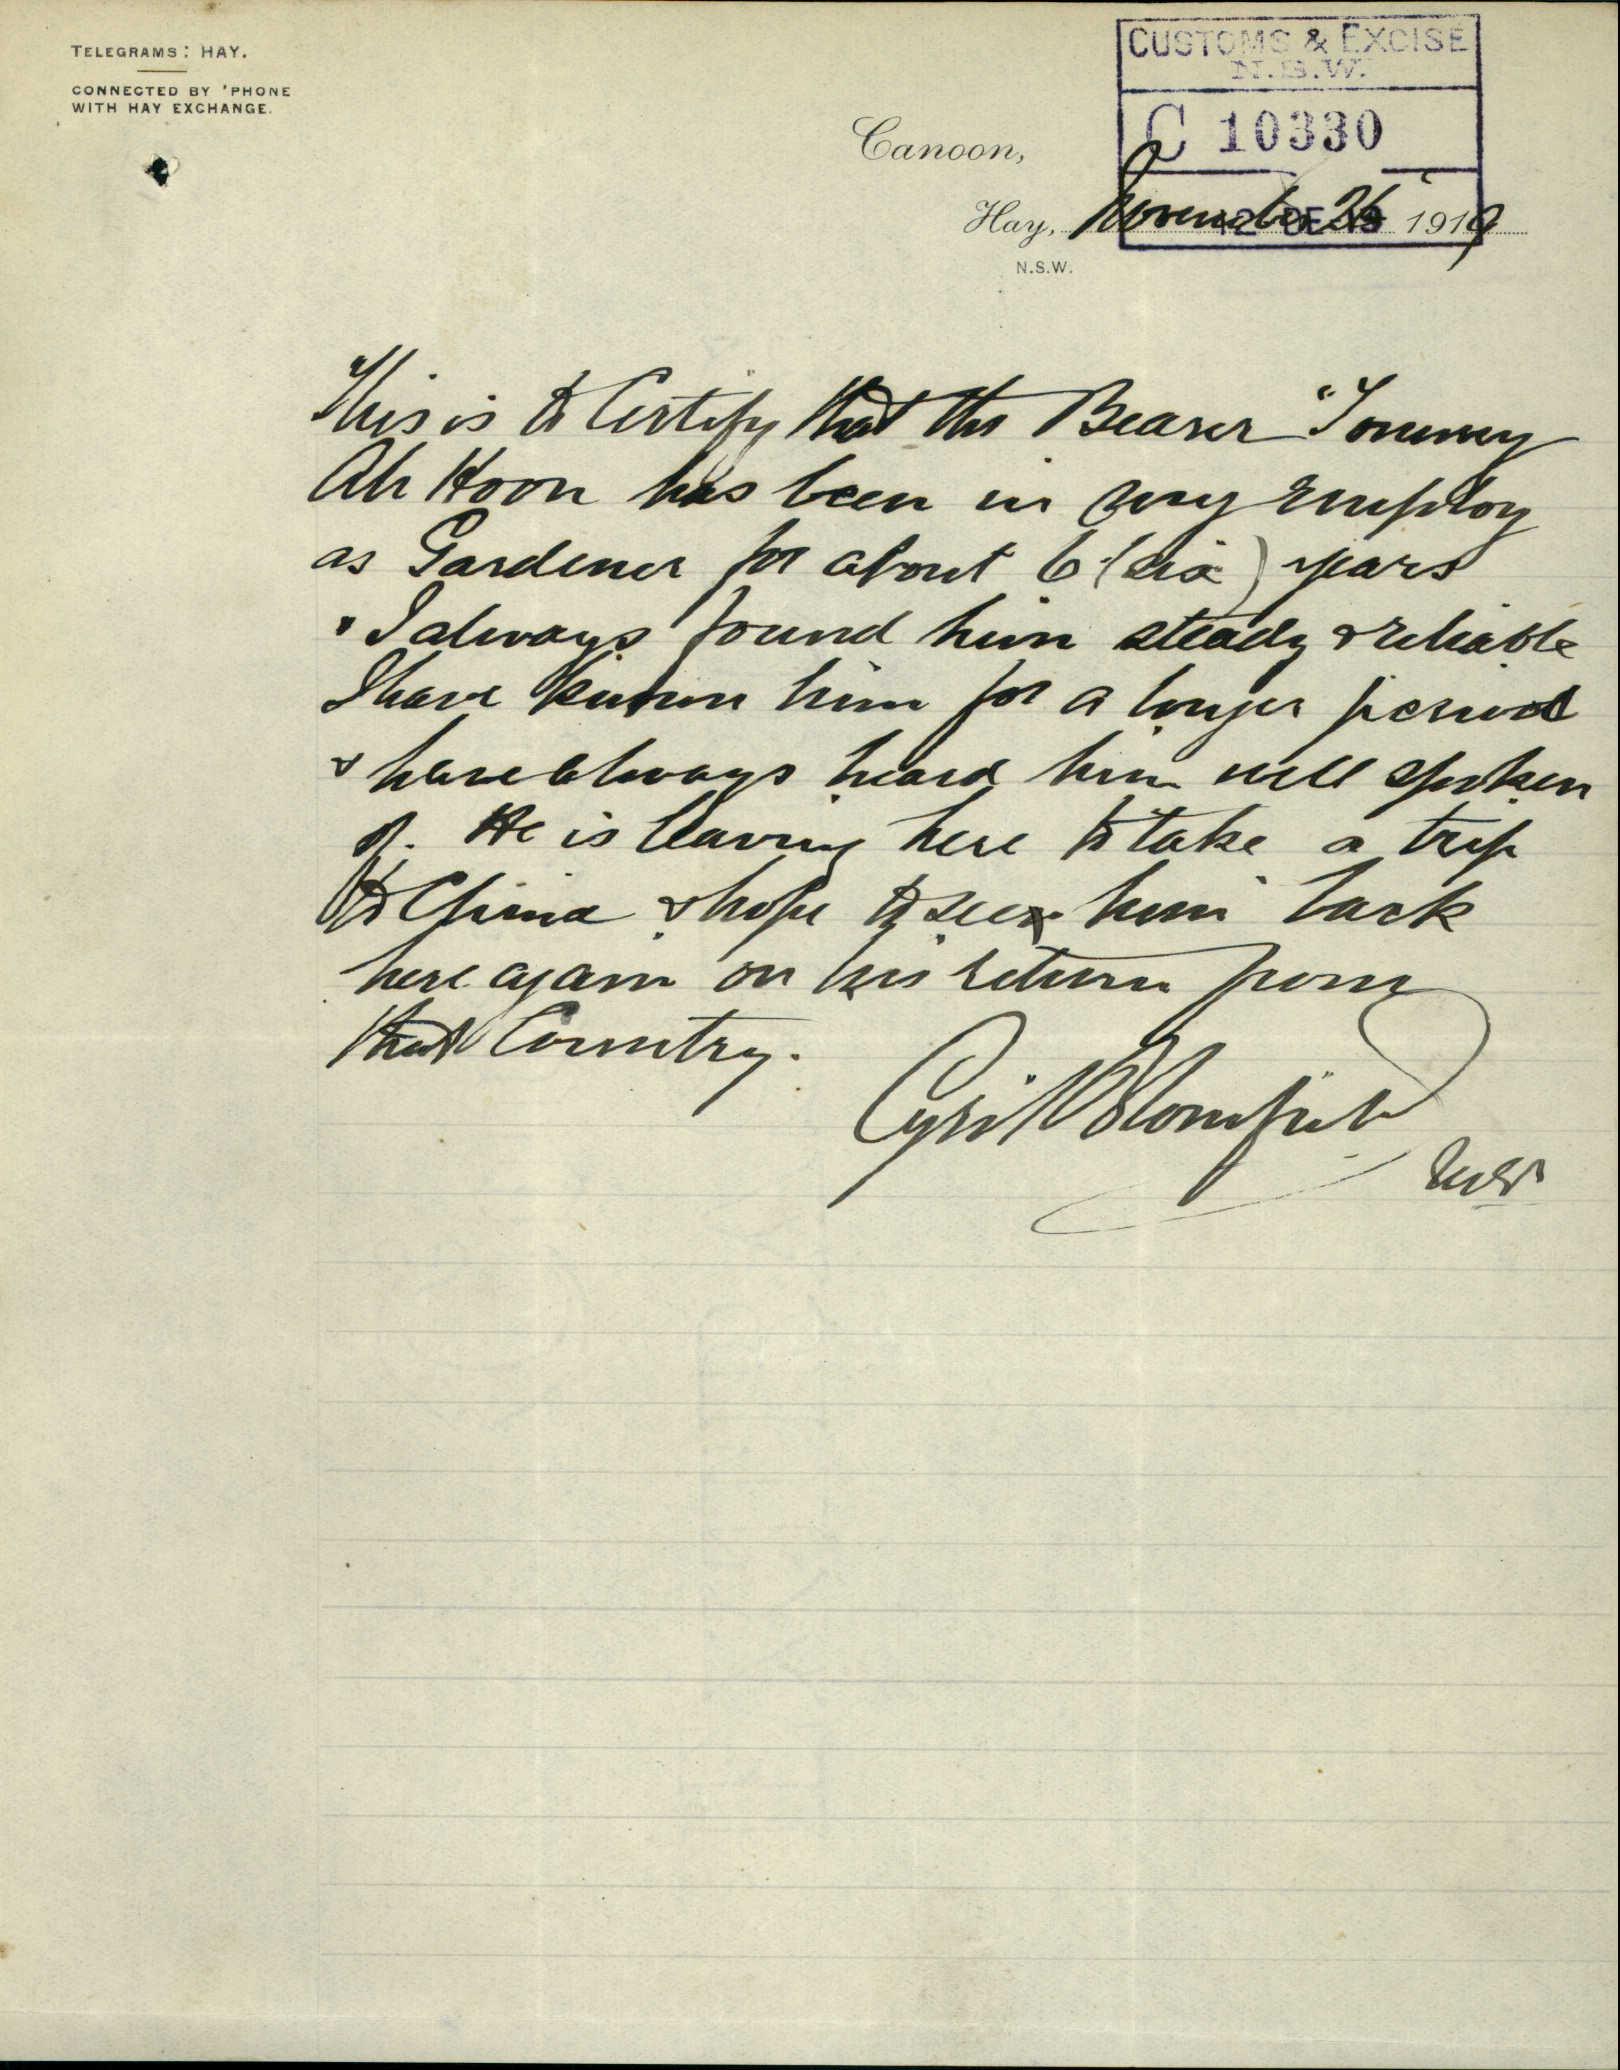 TELEGRAMS: HAY.
CONNECTED BY 'PHONE
WITH HAY EXCHANGE.
CUSTOMS & EXCISE
N.S.W.
C 10330
Canoon,
Hay, November 26 1919
N.S.W.
This is to Certify that the Bearer "Tommy
Ah Hoon has been in my employ
as Gardener for about 6 (six) years
& I always found him steady & reliable
I have known him for a longer period
& have always heard him well spoken
of. He is leaving here to take a trip
to China & hope to see him back
here again on his return from
that Country.
Cyril Blomfield